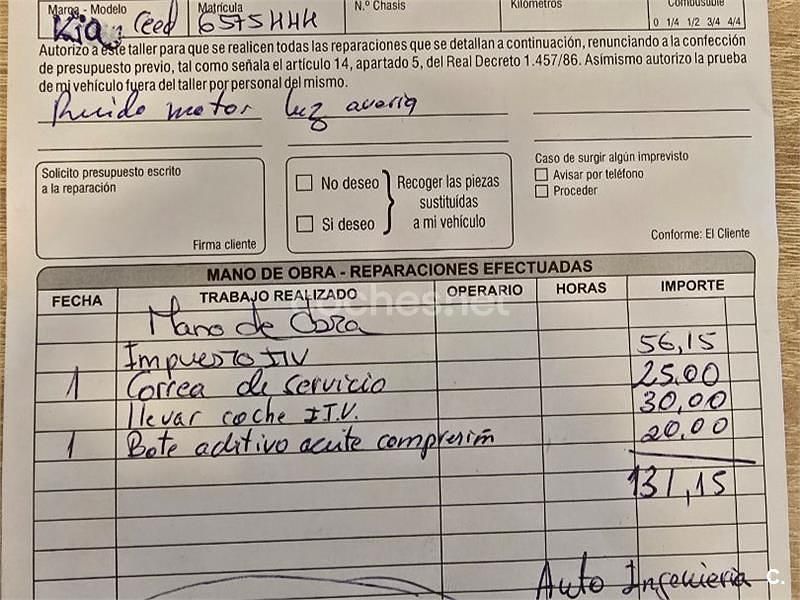 Marca - Modelo Matrícula N.º Chasis Kilómetros Combustible
Kia Ceed 6575 0 1/4 1/2 3/4 4/4
Autorizo a este taller para que se realicen todas las reparaciones que se detallan a continuación, renunciando a la confección
de presupuesto previo, tal como señala el artículo 14, apartado 5, del Real Decreto 1.457/86. Asimismo autorizo la prueba
de mi vehículo fuera del taller por personal del mismo.
Ruido motor luz averia
Solicito presupuesto escrito
a la reparación
Firma cliente
No deseo
Si deseo
Recoger las piezas
sustituídas
a mi vehículo
Caso de surgir algún imprevisto
Avisar por teléfono
Proceder
Conforme: El Cliente
MANO DE OBRA - REPARACIONES EFECTUADAS
FECHA TRABAJO REALIZADO OPERARIO HORAS IMPORTE
coches.net
Mano de Obra
Impuesto ITV 56,15
1 Correa de servicio 25.00
llevar coche I.T.V. 30,00
1 Bote aditivo aceite compresión 20.00
131,15
Auto Ingenieria
C.